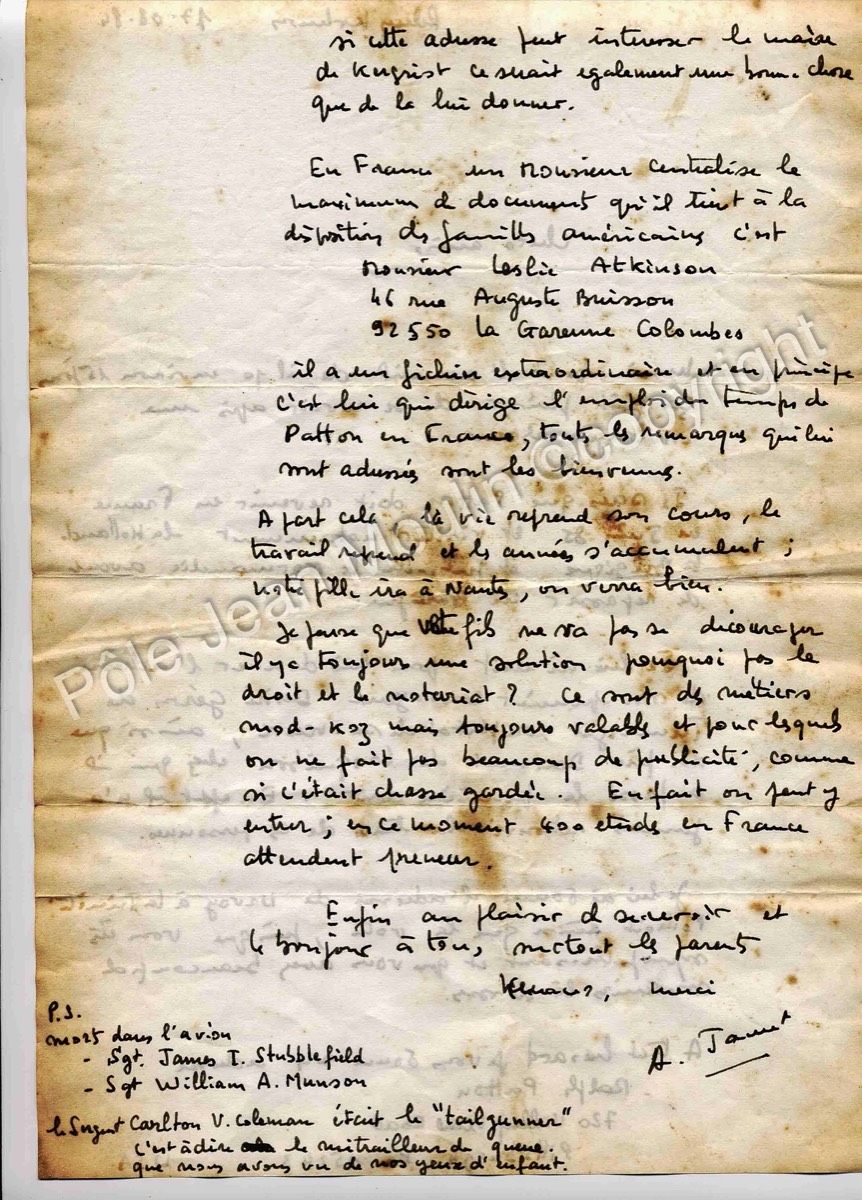 si cette adresse peut interesser le maire
de Kergrist ce serait egalement une bonne chose
que de la lui donner.
En France un Monsieur centralise le
maximum de document qu'il tient à la
disposition des familles américaines c'est
Monsieur Leslie Atkinson
46 rue Auguste Buisson
92550 La Garenne Colombes
il a un fichier extraordinaire et en principe
c'est lui qui dirige l'emploi du temps de
Patton en France, toutes les remarques qui lui
sont adressées sont les bienvenues.
A part cela, la vie reprend son cours, le
travail reprend et les années s'accumulent ;
notre fille ira à Nantes, on verra bien.
Je pense que votre fils ne va pas se décourager
il y a toujours une solution pourquoi pas le
droit et le notariat ? Ce sont des métiers
mod-koz mais toujours valables et pour lesquels
on ne fait pas beaucoup de publicité, comme
si c'était chasse gardée. En fait on peut y
entrer ; en ce moment 400 etudes en France
attendent preneur.
Enfin au plaisir de se revoir et
le bonjour à tous, surtout les parents
merci
A.
P.S.
mort dans l'avion
- Sgt. James I. Stubblefield
- Sgt William A. Munson
le Sergent Carlton V. Coleman était le "tailgunner"
c'est à dire le mitrailleur de queue.
que nous avons vu de nos yeux d'enfant.
Pôle Jean Moulin @copyright